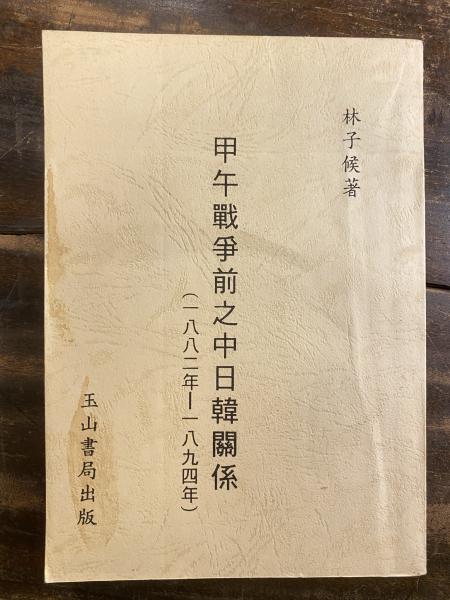 林子候著
甲午戰爭前之中日韓關係
(一八八二年—一八九四年)
玉山書局出版